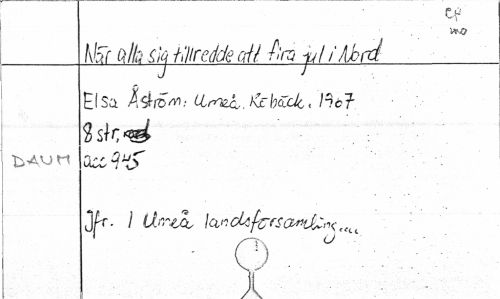 När alla sig tillredde att fira jul i Nord
Elsa Åström: Umeå. Rebäck. 1907
8 str,
DAUM acc 945
Jfr. I Umeå landsförsamling....